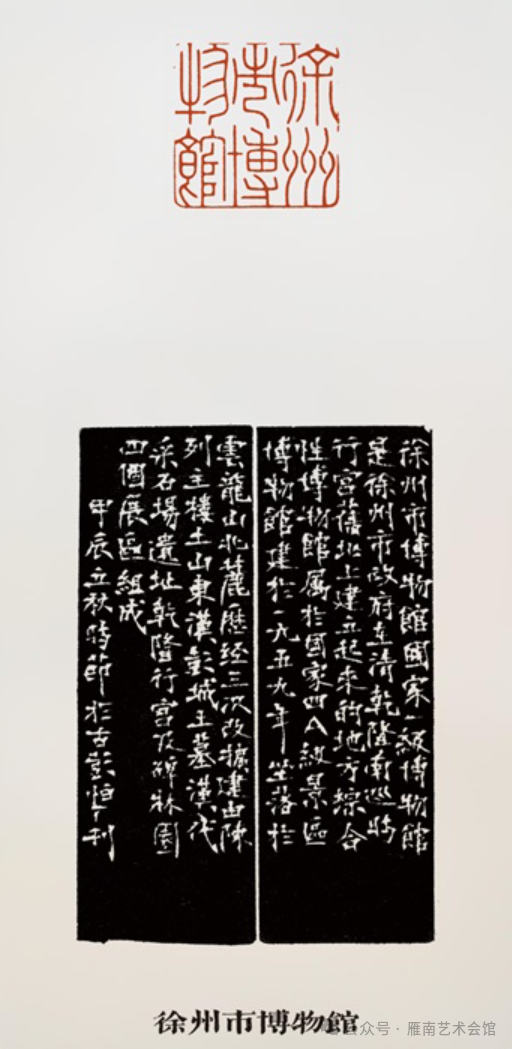 徐州
市博
物館
徐州市博物館國家一級博物館
是徐州市政府在清乾隆南巡時
行宮舊址上建立起來的地方綜合
性博物館屬於國家四A級景區
博物館建於一九五九年坐落於
雲龍山北麓歷經三次改擴建由陳
列主樓土山東漢彭城王墓漢代
采石場遺址乾隆行宮及碑林園
四個展區組成
甲辰立秋時節於古彭恒利
徐州市博物館
公众号 · 雁南艺术会馆